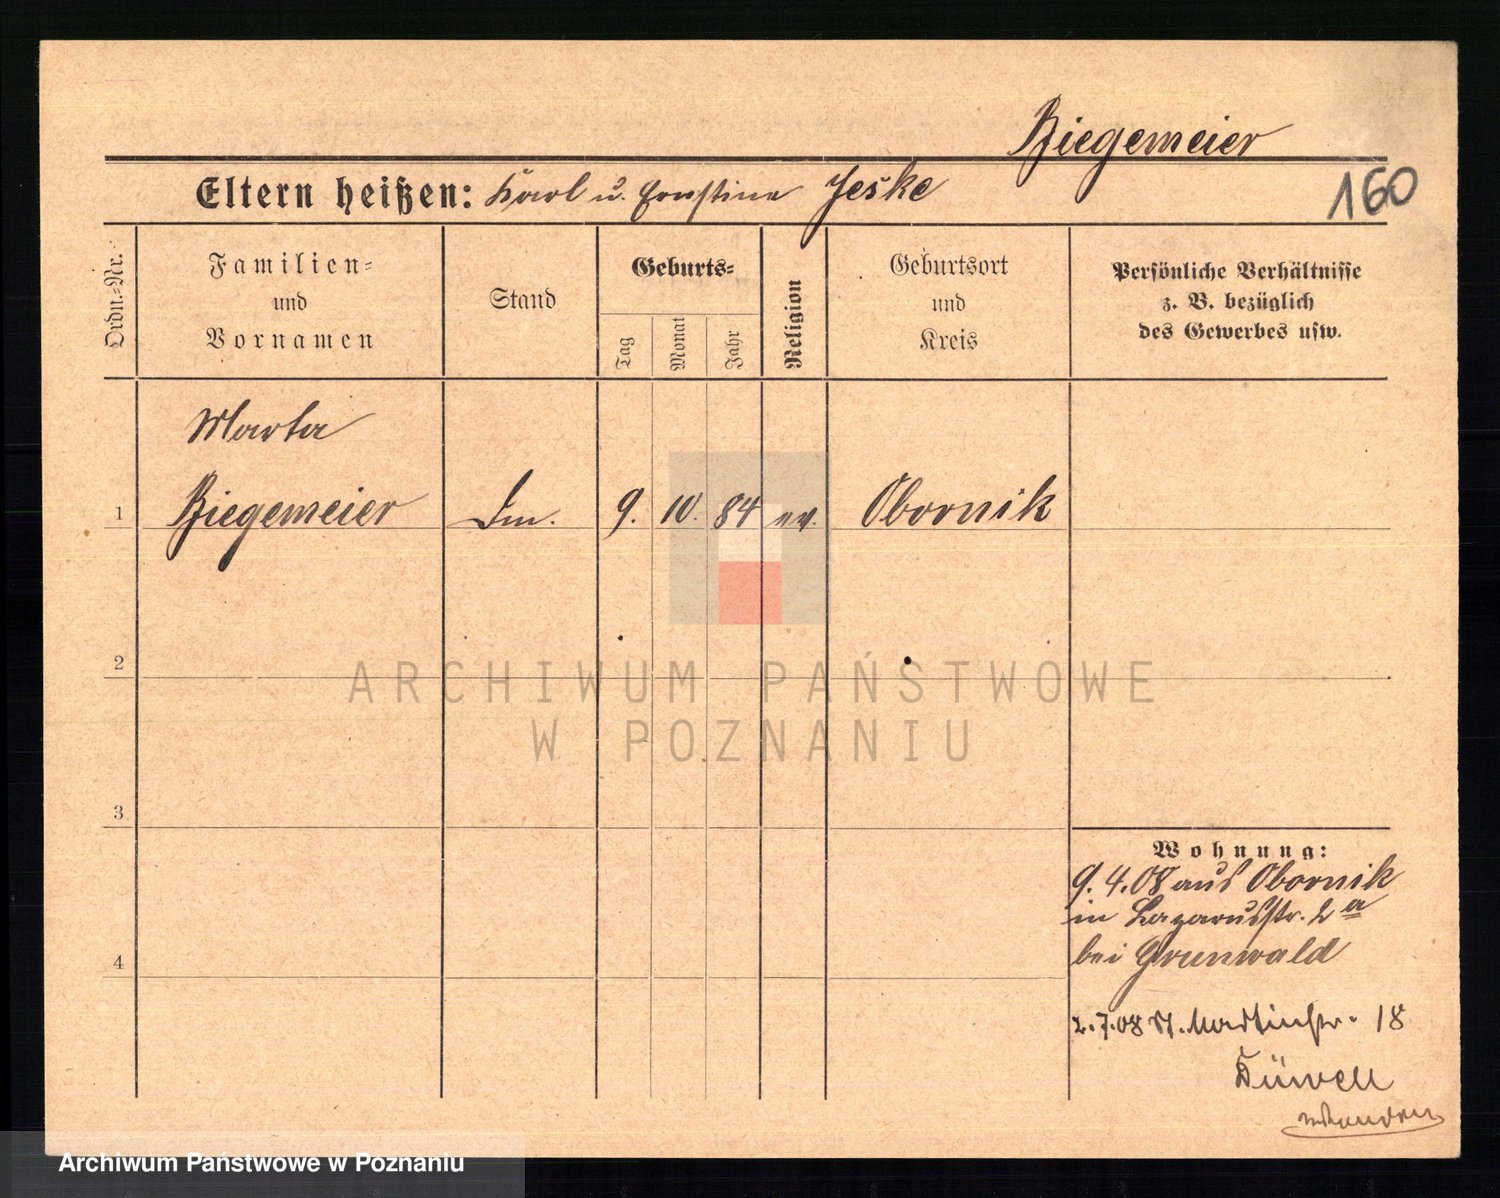 Ziegemeier
Eltern heißen: Karl u. Ernstine Jeske
160
Ordn.-Nr.
Familien-
und
Vornamen
Stand
Geburts-
Tag
Monat
Jahr
Religion
Geburtsort
und
Kreis
Persönliche Verhältnisse
z. B. bezüglich
des Gewerbes usw.
Marta
1 Ziegemeier 9. 10. 84 ev. Obornik
2
ARCHIWUM PAŃSTWOWE
W POZNANIU
3
Wohnung:
9.4.08 aus Obornik
in Lazarusstr. 2a
bei Grunwald
4
2.7.08 St. Martinstr. 18
Düvell
Archiwum Państwowe w Poznaniu